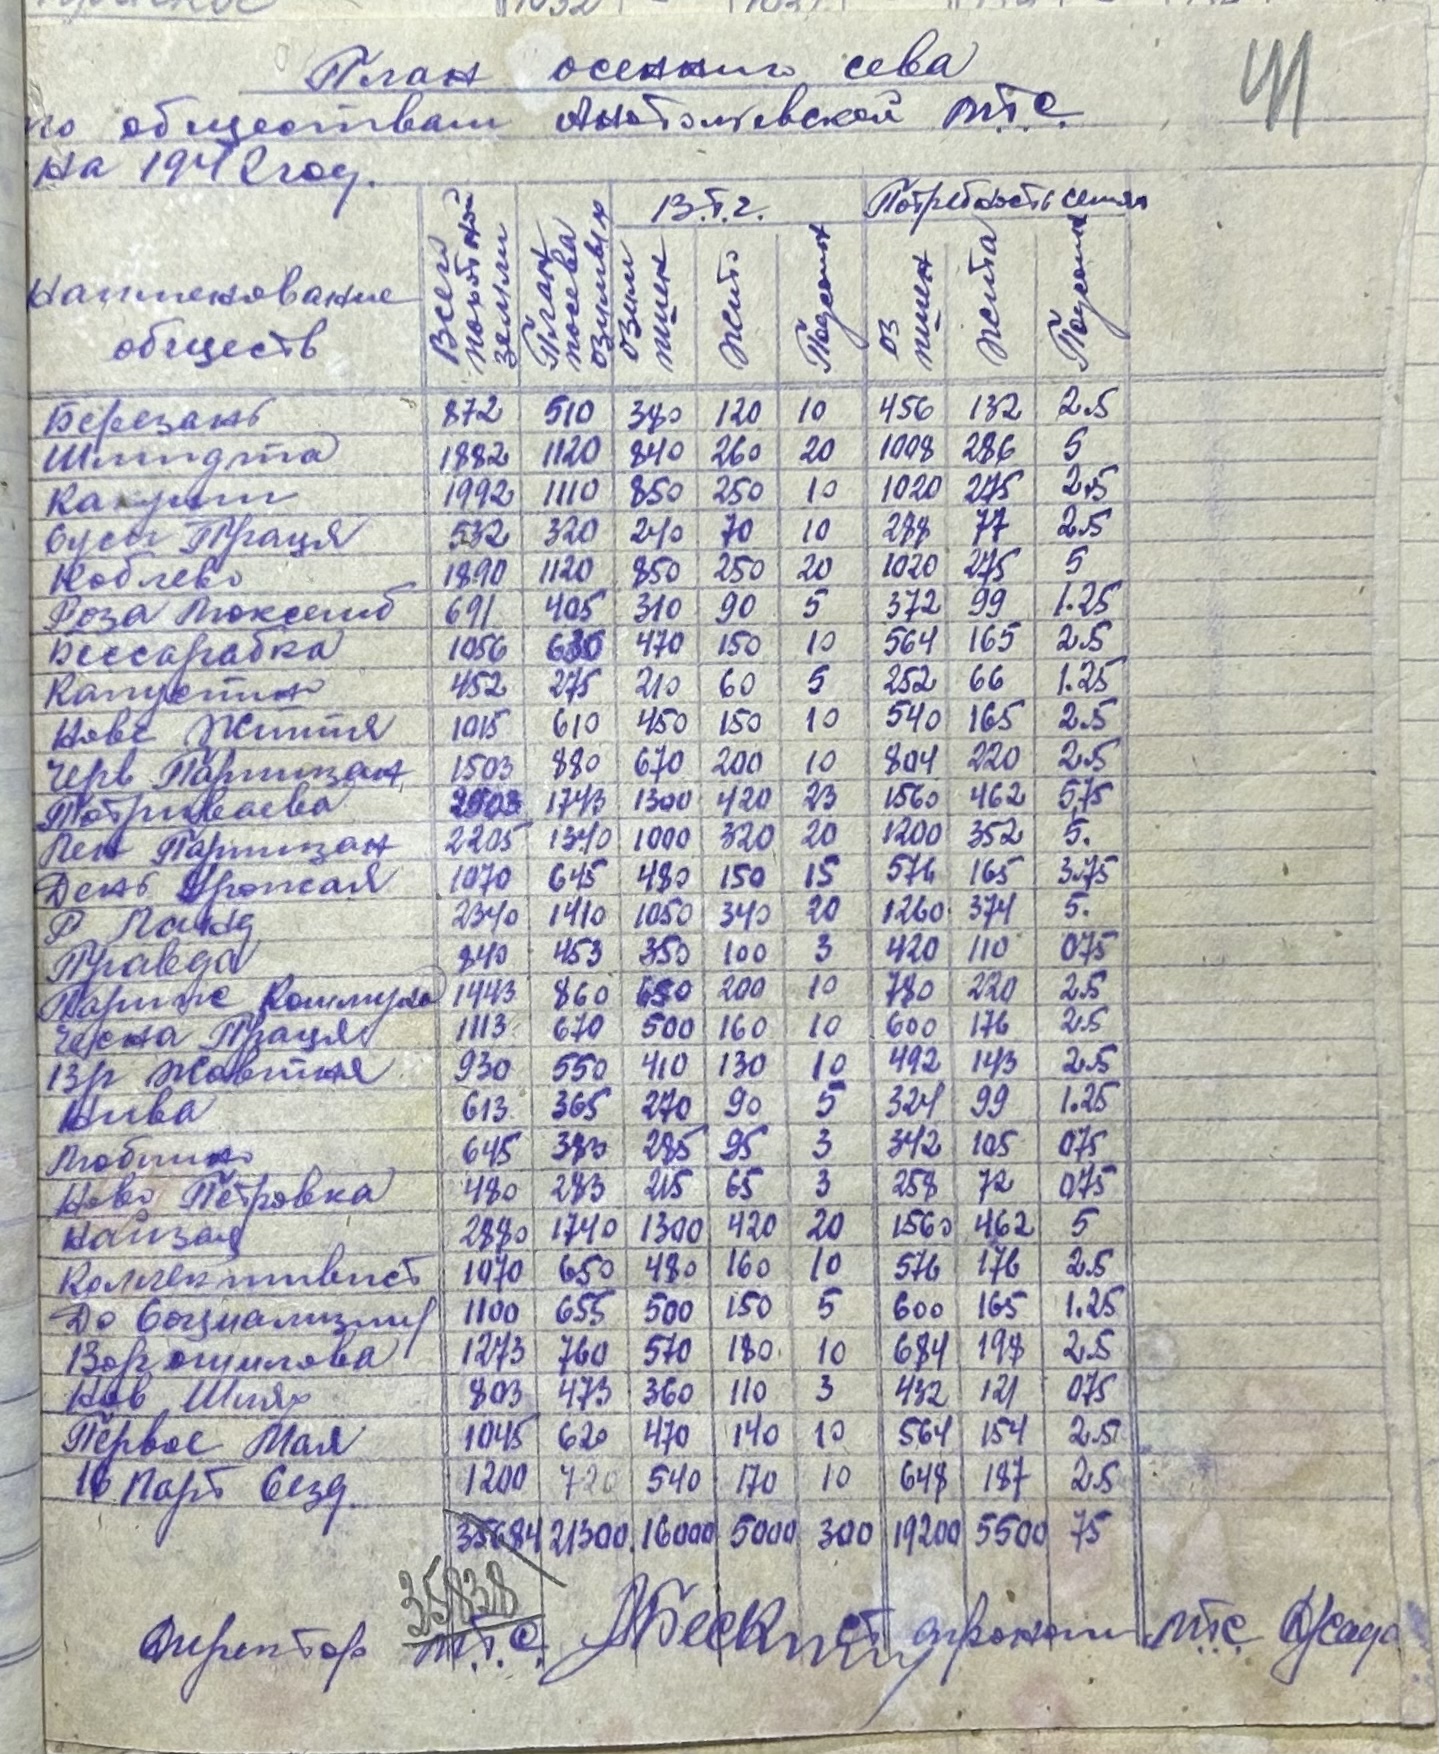 41
План осеннего сева
по обществам Анатольевской М.Т.С.
на 1942 год.
Наименование обществ | Всего пахотной земли | План посева озимых | В.т.ч. | Потребность семян
Озим пшен | Жито | Подсолн | Оз пшен | Жита | Подсолн
Березань 872 510 380 120 10 456 132 2.5
Шмидта 1882 1120 840 260 20 1008 286 5
1992 1110 850 250 10 1020 275 2.5
Праця 532 320 240 70 10 288 77 2.5
Коблево 1890 1120 850 250 20 1020 275 5
Роза Люксемб 691 405 310 90 5 372 99 1.25
Бессарабка 1056 630 470 150 10 564 165 2.5
Капустино 452 275 210 60 5 252 66 1.25
Нове Життя 1015 610 450 150 10 540 165 2.5
Черв Партизан 1503 880 670 200 10 804 220 2.5
1743 1300 420 23 1560 462 5,75
Лен Партизан 2205 1340 1000 320 20 1200 352 5.
День Урожая 1070 645 480 150 15 576 165 3.75
Р Ланд 2340 1410 1050 340 20 1260 374 5.
Правда 840 453 350 100 3 420 110 075
Париж Коммуна 1443 860 650 200 10 780 220 2.5
Чесна Праця 1113 670 500 160 10 600 176 2.5
Вр Жовтня 930 550 410 130 10 492 143 2.5
Нива 613 365 270 90 5 324 99 1.25
Любино 645 383 285 95 3 342 105 075
Ново Петровка 480 283 215 65 3 258 72 075
Найзац 2880 1740 1300 420 20 1560 462 5
Коллективист 1070 650 480 160 10 576 176 2.5
До Социализму 1100 655 500 150 5 600 165 1.25
Ворошилова 1273 760 570 180 10 684 198 2.5
Нов Шлях 803 473 360 110 3 432 121 075
Первое Мая 1045 620 470 140 10 564 154 2.5
16 Парт Сезд. 1200 720 540 170 10 648 187 2.5
35684 21300. 16000 5000 300 19200 5500 75
35838
Директор М.Т.С. ст агроном МТС